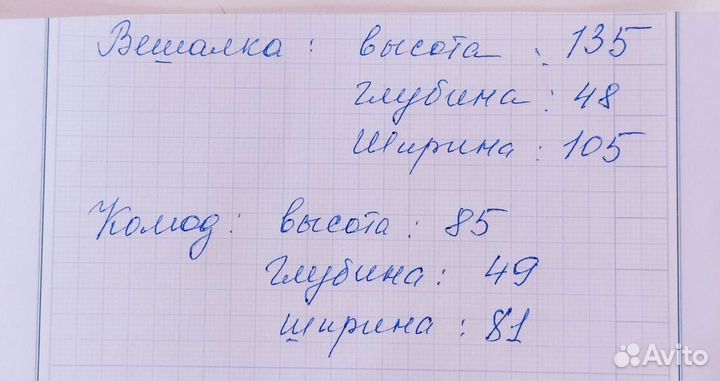 Вешалка : высота : 135
глубина : 48
Ширина : 105
Комод : высота : 85
Глубина : 49
ширина : 81
Avito